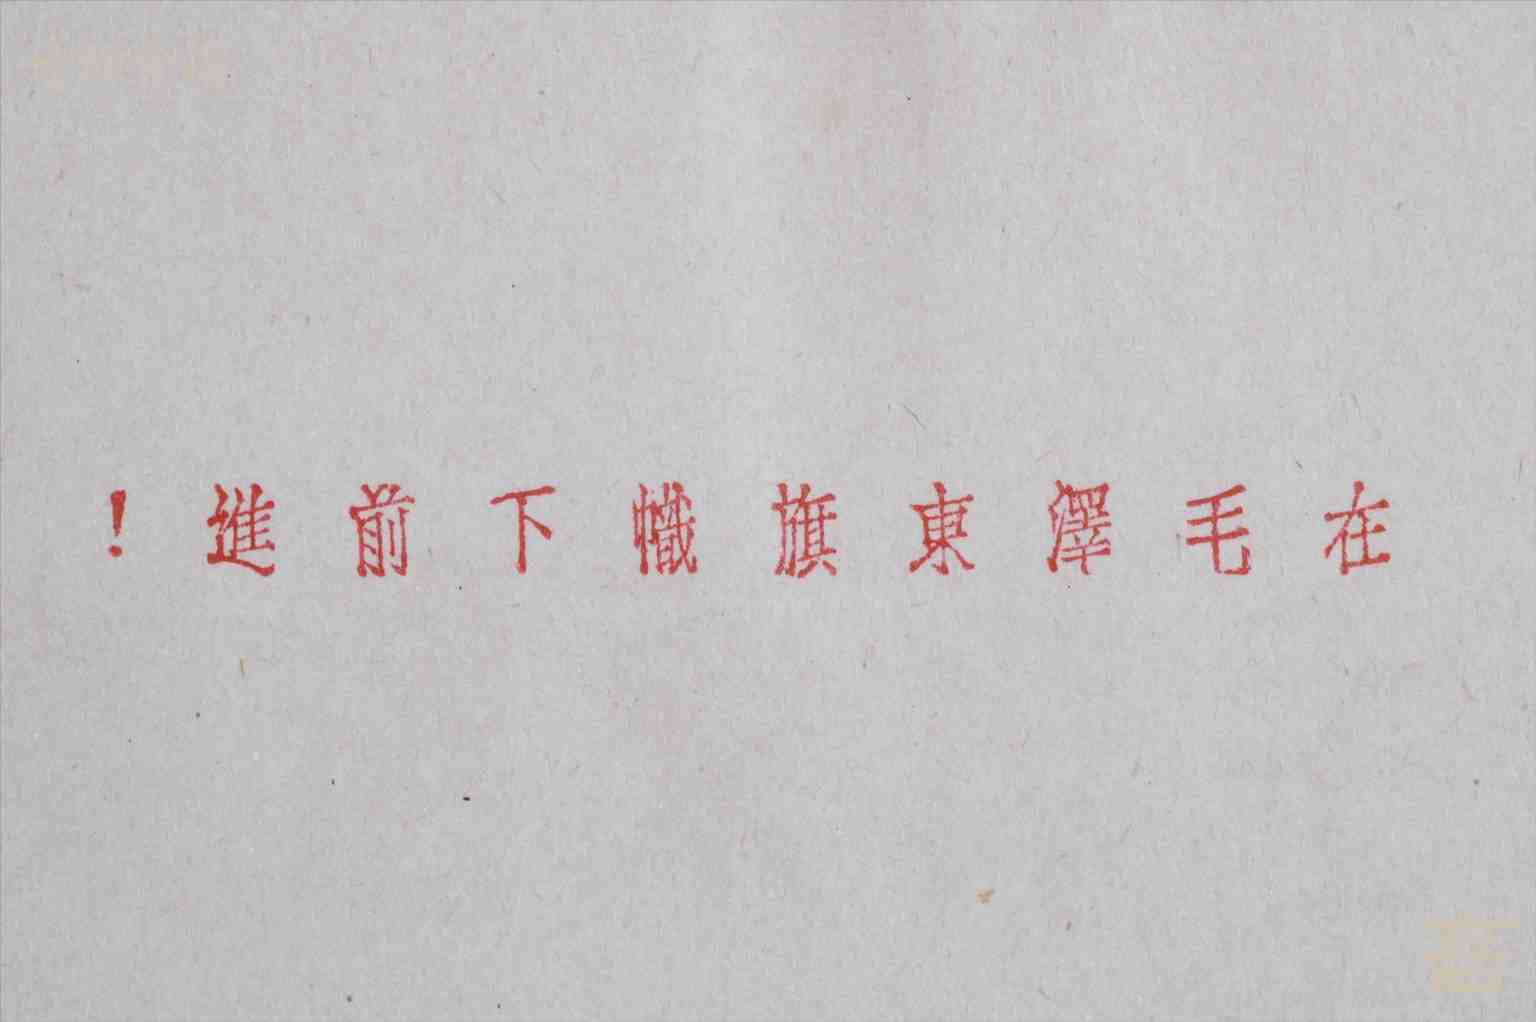 在毛澤東旗幟下前進！